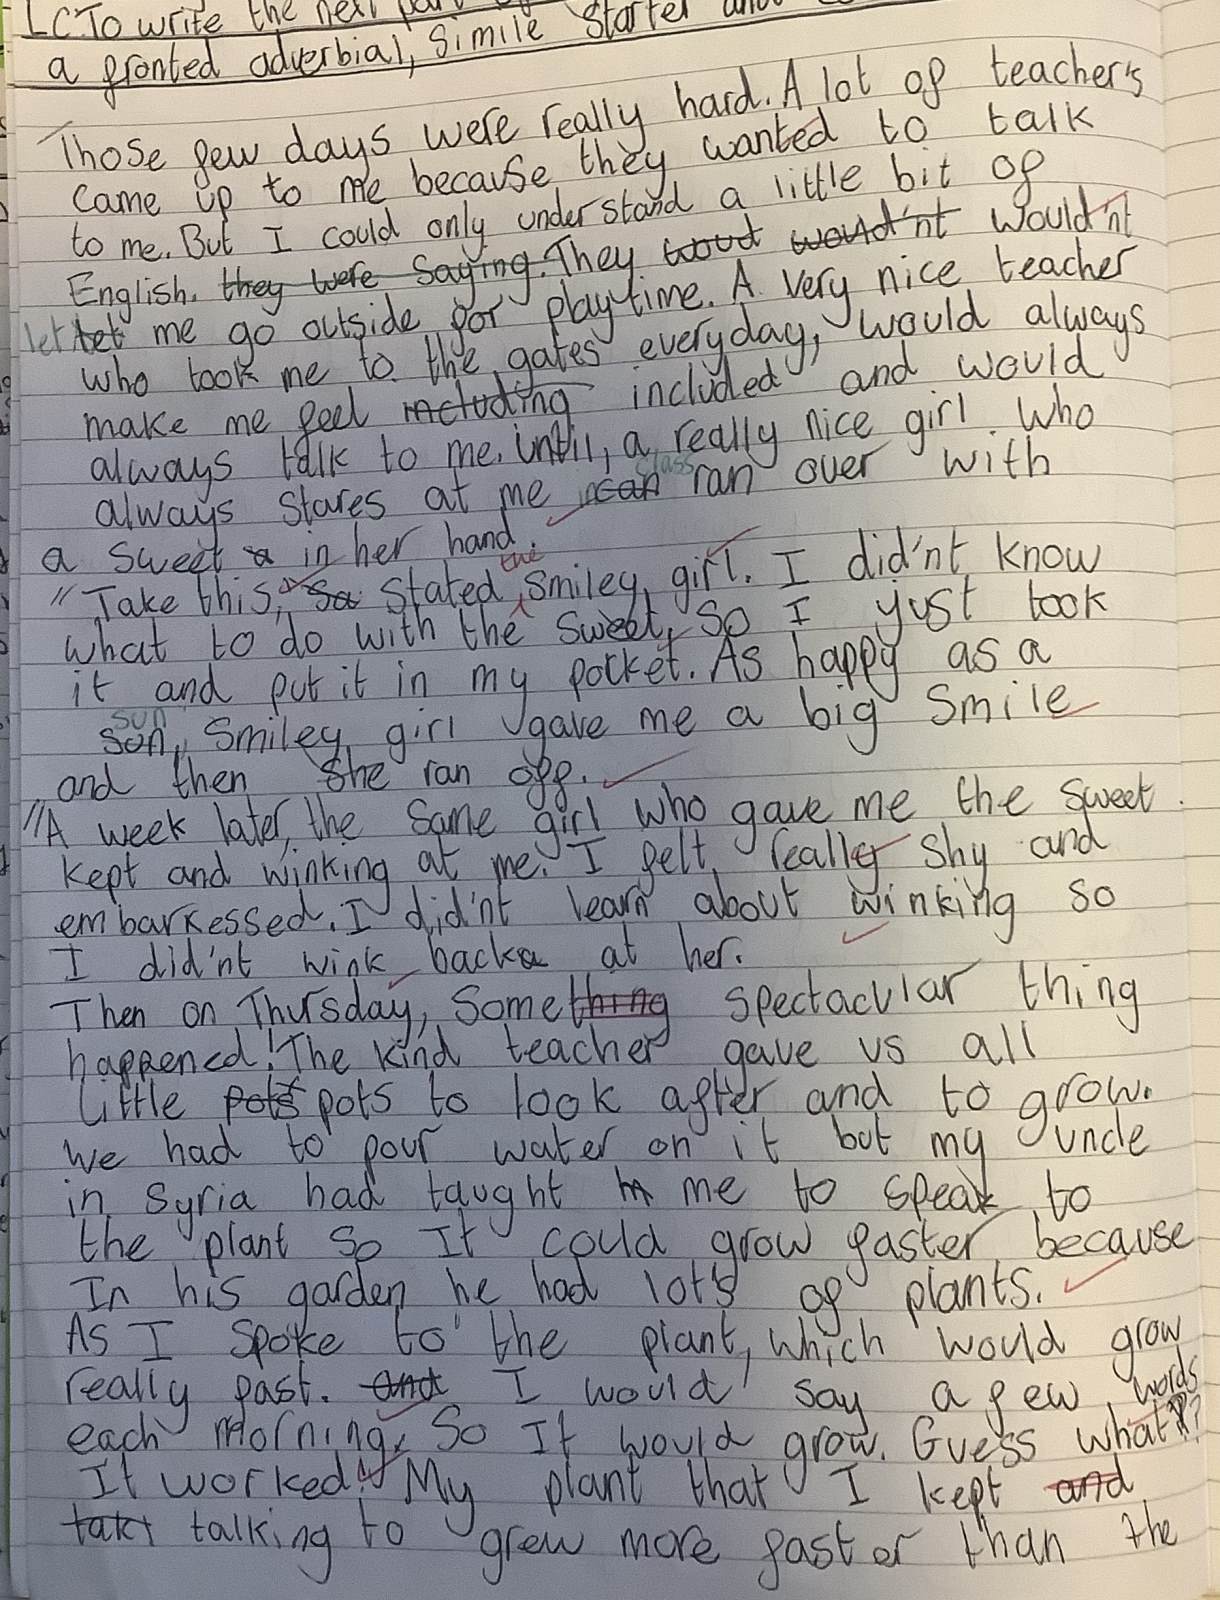 LC:To write the next
a fronted adverbial, Simile Starter and
Those few days were really hard. A lot of teacher's
came up to me because they wanted to talk
to me. But I could only understand a little bit of
English. they were saying. They woud would'nt would'nt
let let me go outside for playtime. A very nice teacher
who took me to the gates everyday, would always
make me feel including included and would
always talk to me. Until, a really nice girl who
class
always stares at me in ran over with
a sweet a in her hand.
the
// "Take this," Sa stated, smiley girl. I did'nt know
what to do with the sweet, so I just took
it and put it in my pocket. As happy as a
sun
son, smiley girl gave me a big smile
and then she ran off.
// A week later, the same girl who gave me the sweet
kept and winking at me. I felt really shy and
embarkessed. I did'nt learn about winking so
I did'nt wink back a at her.
Then on Thursday, Something spectacular thing
happened! The kind teacher gave us all
little pots pots to look after and to grow.
We had to pour water on it but my uncle
in Syria had taught me to speak to
the plant so It could grow faster because
In his garden he had lot's of plants.
As I spoke to the plant, which would grow
really fast. and I would say a few words
each morning, So It would grow. Guess what?
It worked! My plant that I kept and
takt talking to grew more faster than the